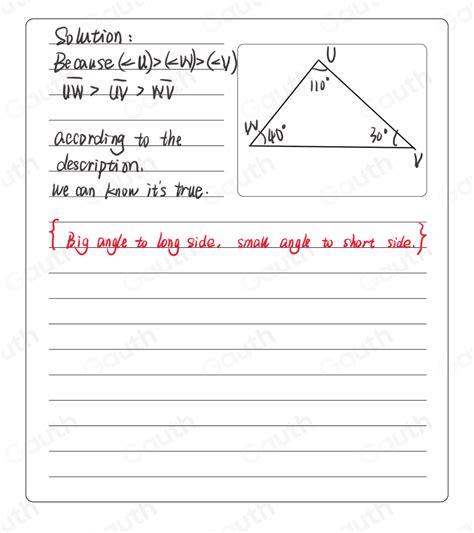 Solution:
Because (<U)>(<W)>(<V)
UW > UV > WV
according to the
description.
we can know it's true.
U
110°
W
40°
30°
V
{Big angle to long side, small angle to short side.}
Gauth